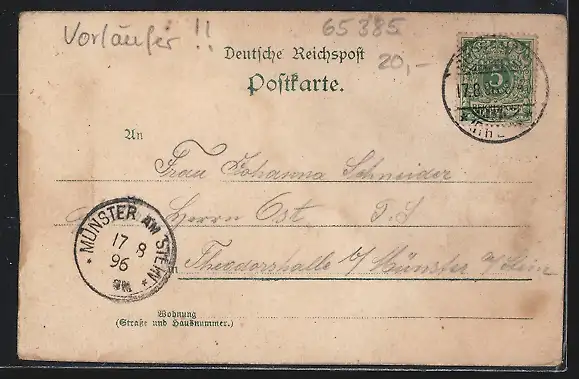 Vorläufer !!
65385
20,-
Deutsche Reichspost
Postkarte.
5
17.8.96
An
Frau Johanna Schneider
Herrn Ost
Theodorshalle b/ Münster a/ Stein
MÜNSTER AM STEIN
17 8
96
Wohnung
(Straße und Hausnummer.)